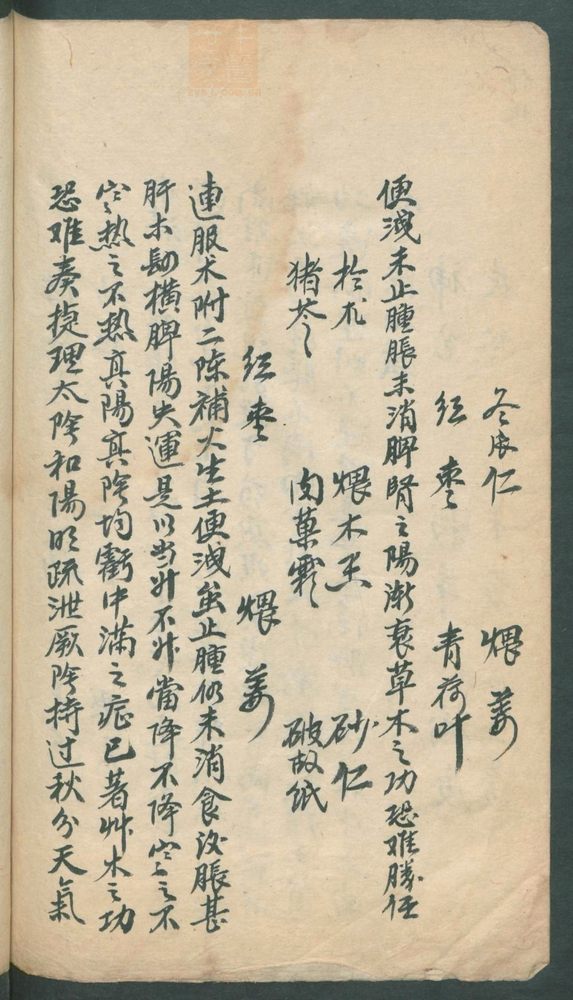 冬瓜仁　煨姜
红枣　青荷叶
便洩未止腫脹未消脾腎之陽漸衰草木之功恐难勝任
於朮　煨木玉　砂仁
猪苓　肉菓霜　破故紙
红枣　煨姜
連服术附二陈補火生土便洩虽止腫仍未消食后脹甚
肝木勐横脾陽失運是以当升不升當降不降寒之不
寒热之不热真陽真陰均虧中滿之症已著艸木之功
恐难奏捷理太陰和陽明疏泄厥陰待过秋分天氣